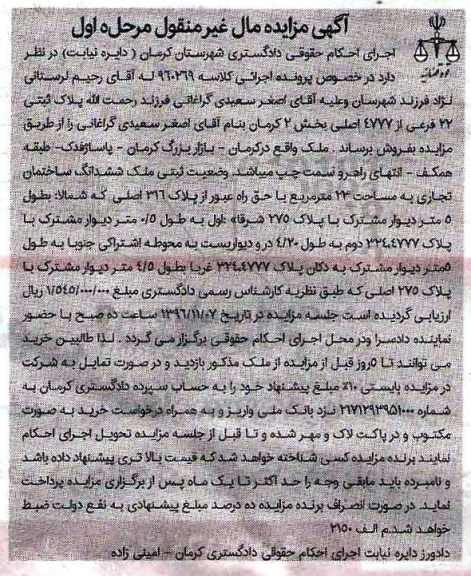 آگهی مزایده مال غیر منقول مرحله اول
قوه قضاییه
اجرای احکام حقوقی دادگستری شهرستان کرمان ( دایره نیابت) در نظر
دارد در خصوص پرونده اجرائی کلاسه ۹۶۰۲۶۹ له آقای رحیم لرستانی
نژاد فرزند شهرسان وعلیه آقای اصغر سعیدی گراغانی فرزند رحمت الله پلاک ثبتی
۲۲ فرعی از ۴۷۷۷ اصلی بخش ۲ کرمان بنام آقای اصغر سعیدی گراغانی را از طریق
مزایده بفروش برساند . ملک واقع درکرمان - بازار بزرگ کرمان - پاساژفدک- طبقه
همکف - انتهای راهرو سمت چپ میباشد. وضعیت ثبتی ملک ششدانگ ساختمان
تجاری به مساحت ۲۳ مترمربع با حق راه عبور از پلاک ۳۹۶ اصلی که شمالا: بطول
۵ متر دیوار مشترک با پلاک ۲۷۵ شرقا» :اول به طول ۰/۵ متر دیوار مشترک با
پلاک ۳۳۴.۴۷۷۷ دوم به طول ۴/۲۰ در و دیواریست به محوطه اشتراکی جنوبا به طول
۵متر دیوار مشترک به دکان پلاک ۳۳۴.۴۷۷۷ غربا بطول ۴/۵ متر دیوار مشترک با
پلاک ۲۷۵ اصلی که طبق نظریه کارشناس رسمی دادگستری مبلغ ۱/۵۴۵/۰۰۰/۰۰۰ ریال
ارزیابی گردیده است جلسه مزایده در تاریخ ۱۳۹۶/۱۱/۰۷ ساعت ده صبح با حضور
نماینده دادسرا ودر محل اجرای احکام حقوقی برگزار می گردد . لذا طالبین خرید
می توانند تا ۵روز قبل از مزایده از ملک مذکور بازدید و در صورت تمایل به شرکت
در مزایده بایستی ۱۰٪ مبلغ پیشنهاد خود را به حساب سپرده دادگستری کرمان به
شماره ۲۱۷۱۲۹۳۹۵۱۰۰۰ نزد بانک ملی واریز و به همراه درخواست خرید به صورت
مکتوب و در پاکت لاک و مهر شده و تا قبل از جلسه مزایده تحویل اجرای احکام
نمایند برنده مزایده کسی شناخته خواهد شد که قیمت بالا تری پیشنهاد داده باشد
و نامبرده باید مابقی وجه را حد اکثر تا یک ماه پس از برگزاری مزایده پرداخت
نماید. در صورت انصراف برنده مزایده ده درصد مبلغ پیشنهادی به نفع دولت ضبط
خواهد شد.م الف ۲۱۵۰
دادورز دایره نیابت اجرای احکام حقوقی دادگستری کرمان - امینی زاده